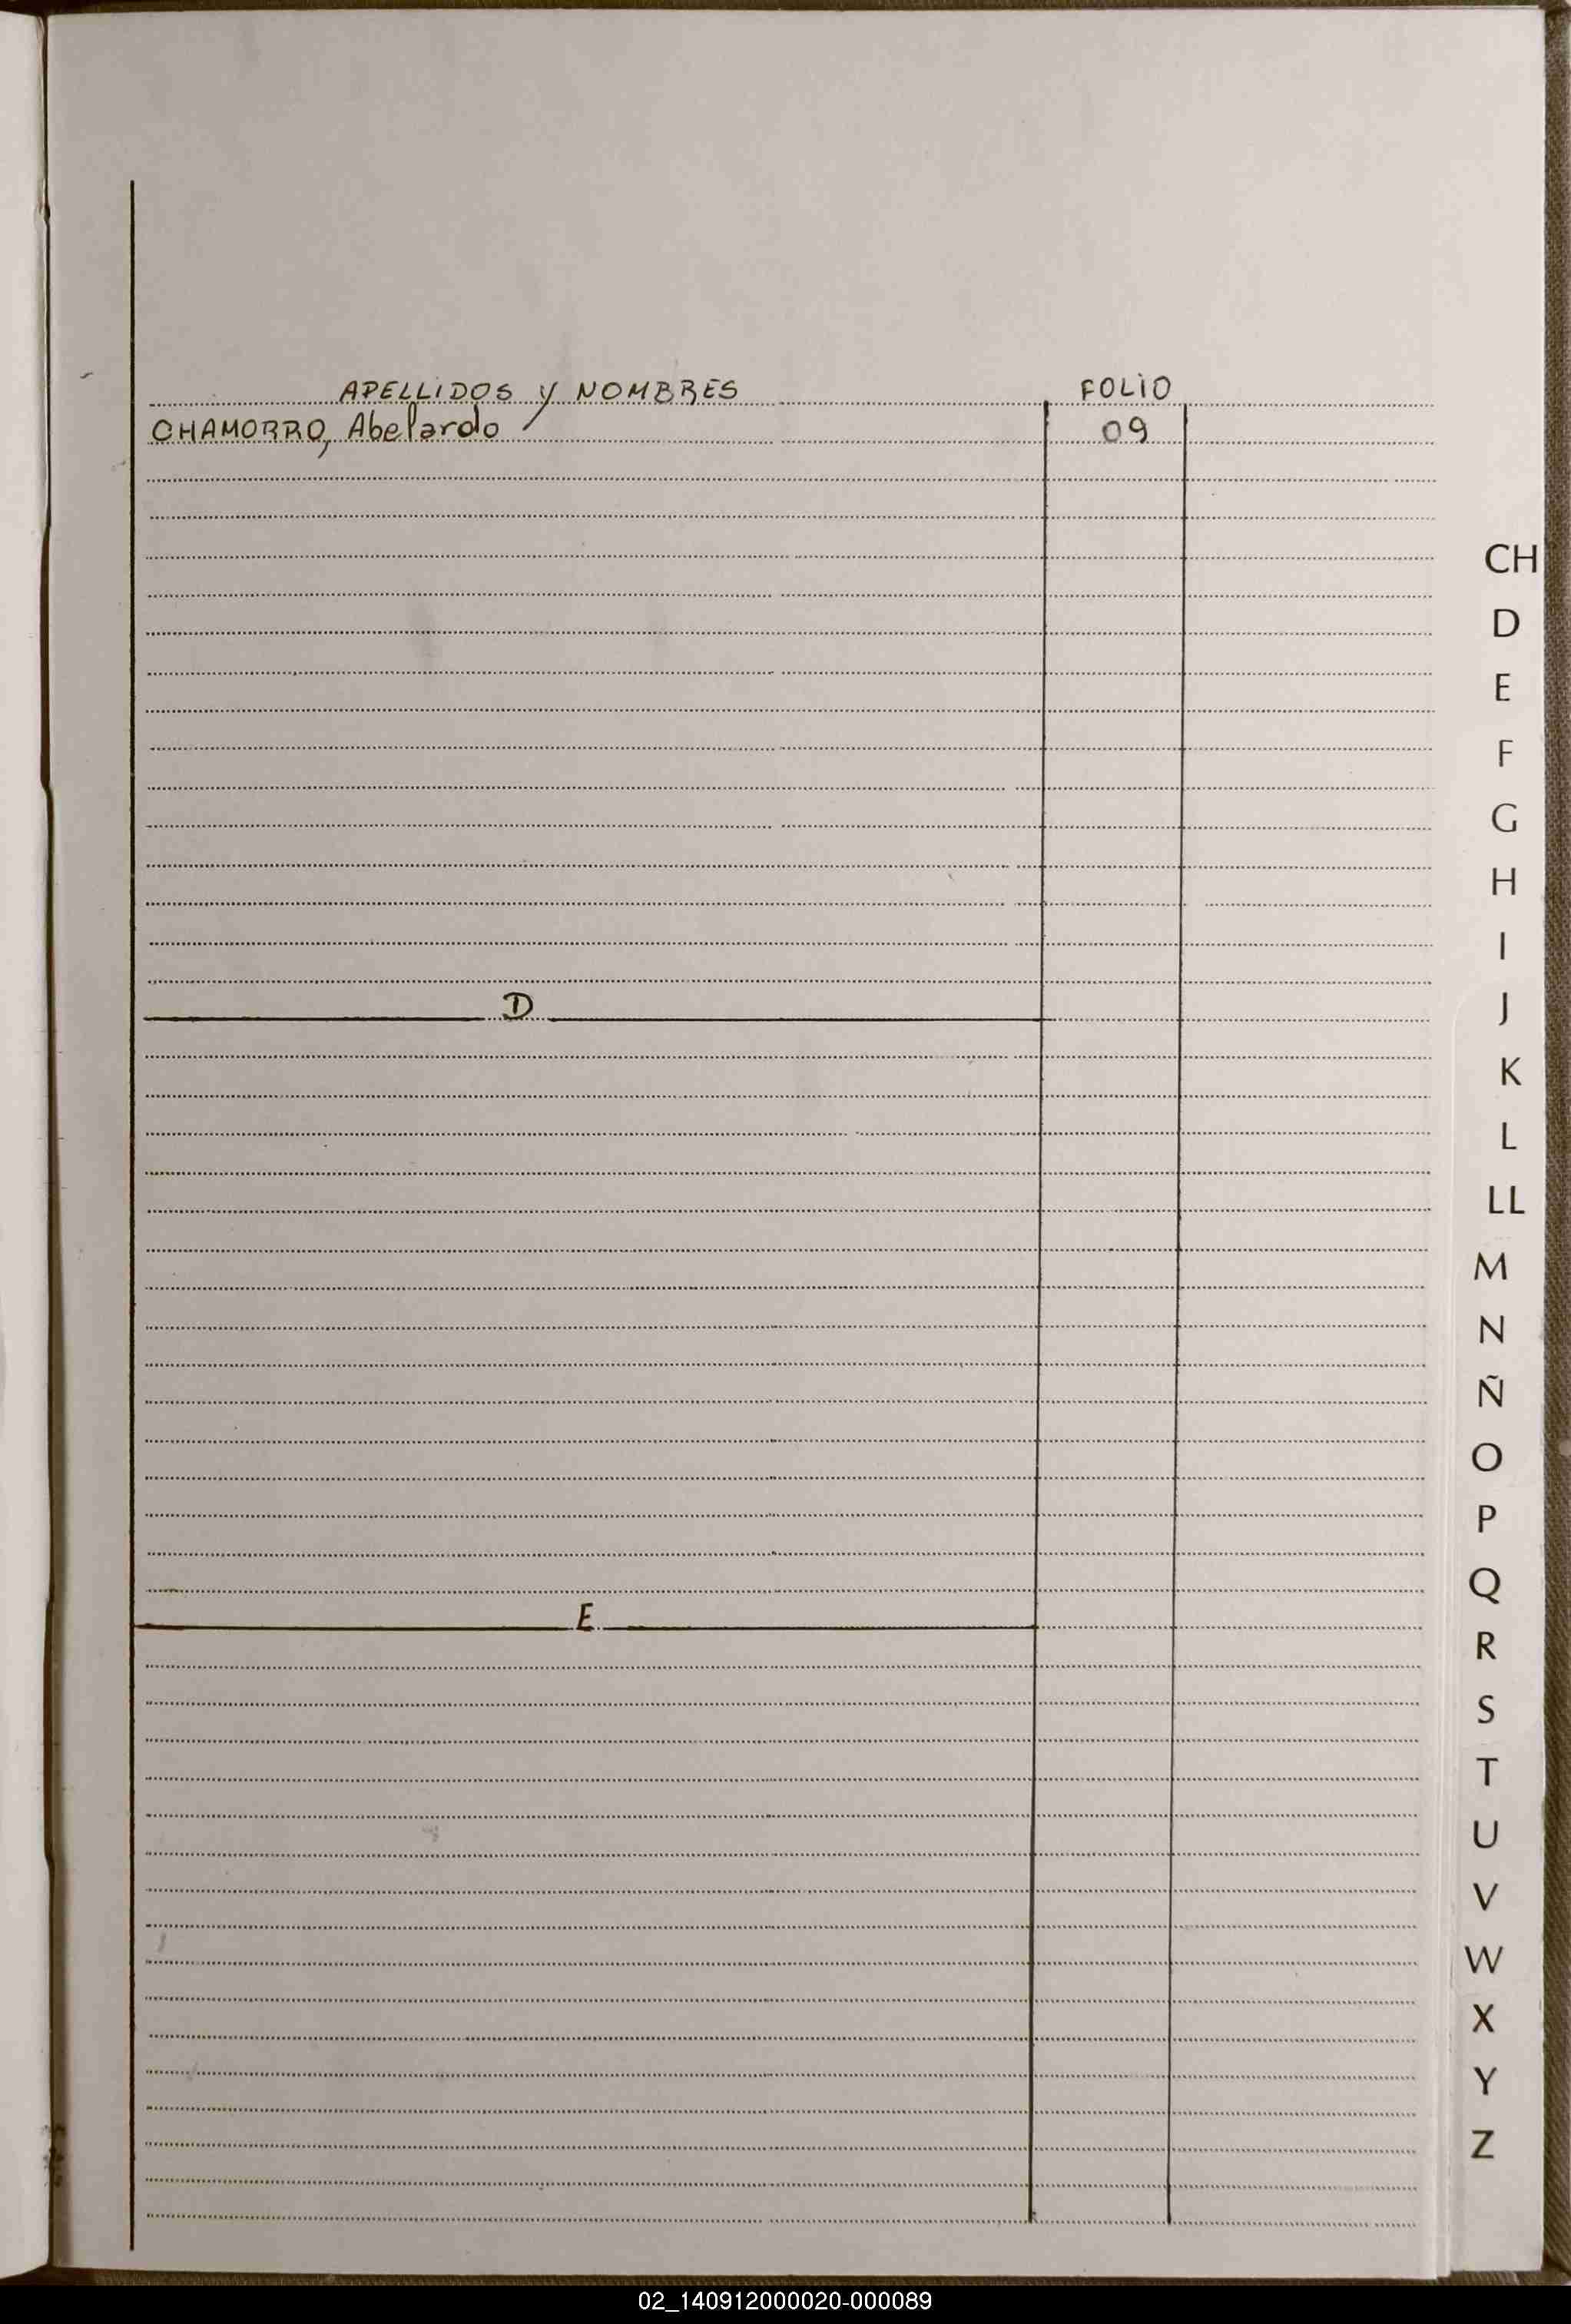 APELLIDOS y NOMBRES FOLIO
CHAMORRO, Abelardo 09
CH
D
E
F
G
H
I
J
D
K
L
LL
M
N
Ñ
O
P
Q
E
R
S
T
U
V
W
X
Y
Z
02_140912000020-000089